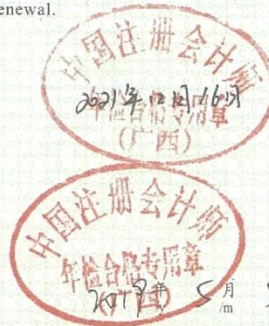 enewal.
中国注册会计师
2021年12月16日
年检合格专用章
(广西)
中国注册会计师
年检合格专用章
2019年 5月
/m